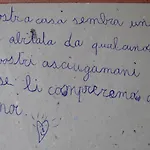 ostra casa sembra un
abitata da qualcuno
vostri asciugamani
se li compreremo
noi..